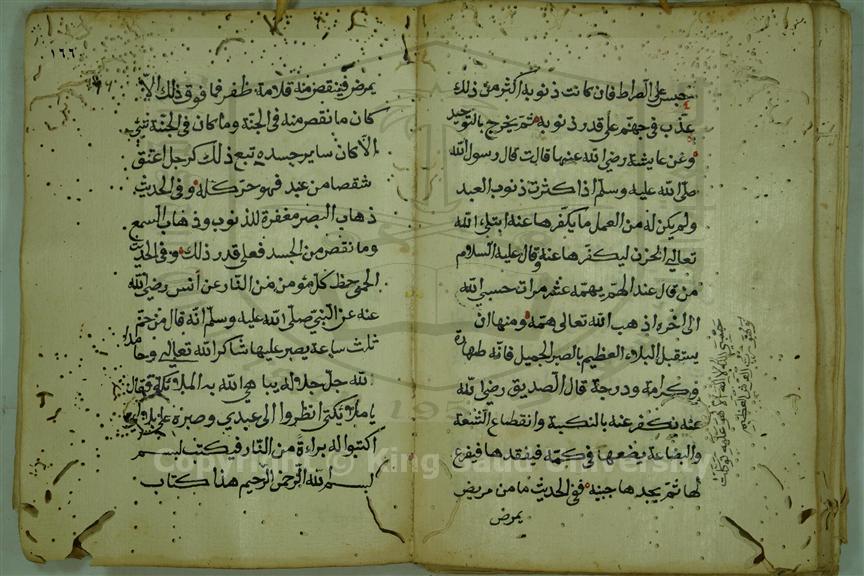 حبس على الصراط فان كانت ذنوبه اكثر من ذلك
عذب في جهنم على قدر ذنوبه ثم يخرج بالتوحيد
وعن عايشة رضي الله عنها قالت قال رسول الله
صلى الله عليه وسلم اذا كثرت ذنوب العبد
ولم يكن له من العمل ما يكفرها عنه ابتلاه الله
تعالى الحزن ليكفرها عنه وقال عليه السلام
من قال عند الهم يهمه عشر مرات حسبي الله
الى اخره اذهب الله تعالى همه ومنها ان
يستقبل البلاء العظيم بالصبر الجميل فانه طهارة
وكرامة ودرجة قال الصديق رضي الله
عنه يكفر عنه بالنكبة وانقطاع الشسعة
والبضاعة يضعها في كمه فيفقدها فيفزع
لها ثم يجدها جيبه ففي الحديث ما من مريض
يمرض
حسبي الله لا اله الا هو عليه توكلت
وهو رب العرش العظيم
١٦٦
يمرض فينقص منه قلامة ظفر فما فوق ذلك الا
كان ما نقص منه في الجنة وما كان في الجنة شيء
الا كان ساير جسده تبع ذلك كرجل اعتق
شقصا من عبد فهو حر كله وفي الحديث
ذهاب البصر مغفرة للذنوب وذهاب السمع
وما نقص من الجسد فعلى قدر ذلك وفي الحديث
الحمى حظ كل مؤمن من النار عن أنس رضي الله
عنه عن النبي صلى الله عليه وسلم انه قال من حم
ثلث ساعة يصبر عليها شاكرا لله تعالى وحامدا
لله جل جلاله يباهي الله به الملائكة فقال
يا ملائكتي انظروا الى عبدي وصبره على بلائي
اكتبوا له براءة من النار فيكتب لبسم
بسم الله الرحمن الرحيم هذا كتاب
Copyright © King Saud University
1957